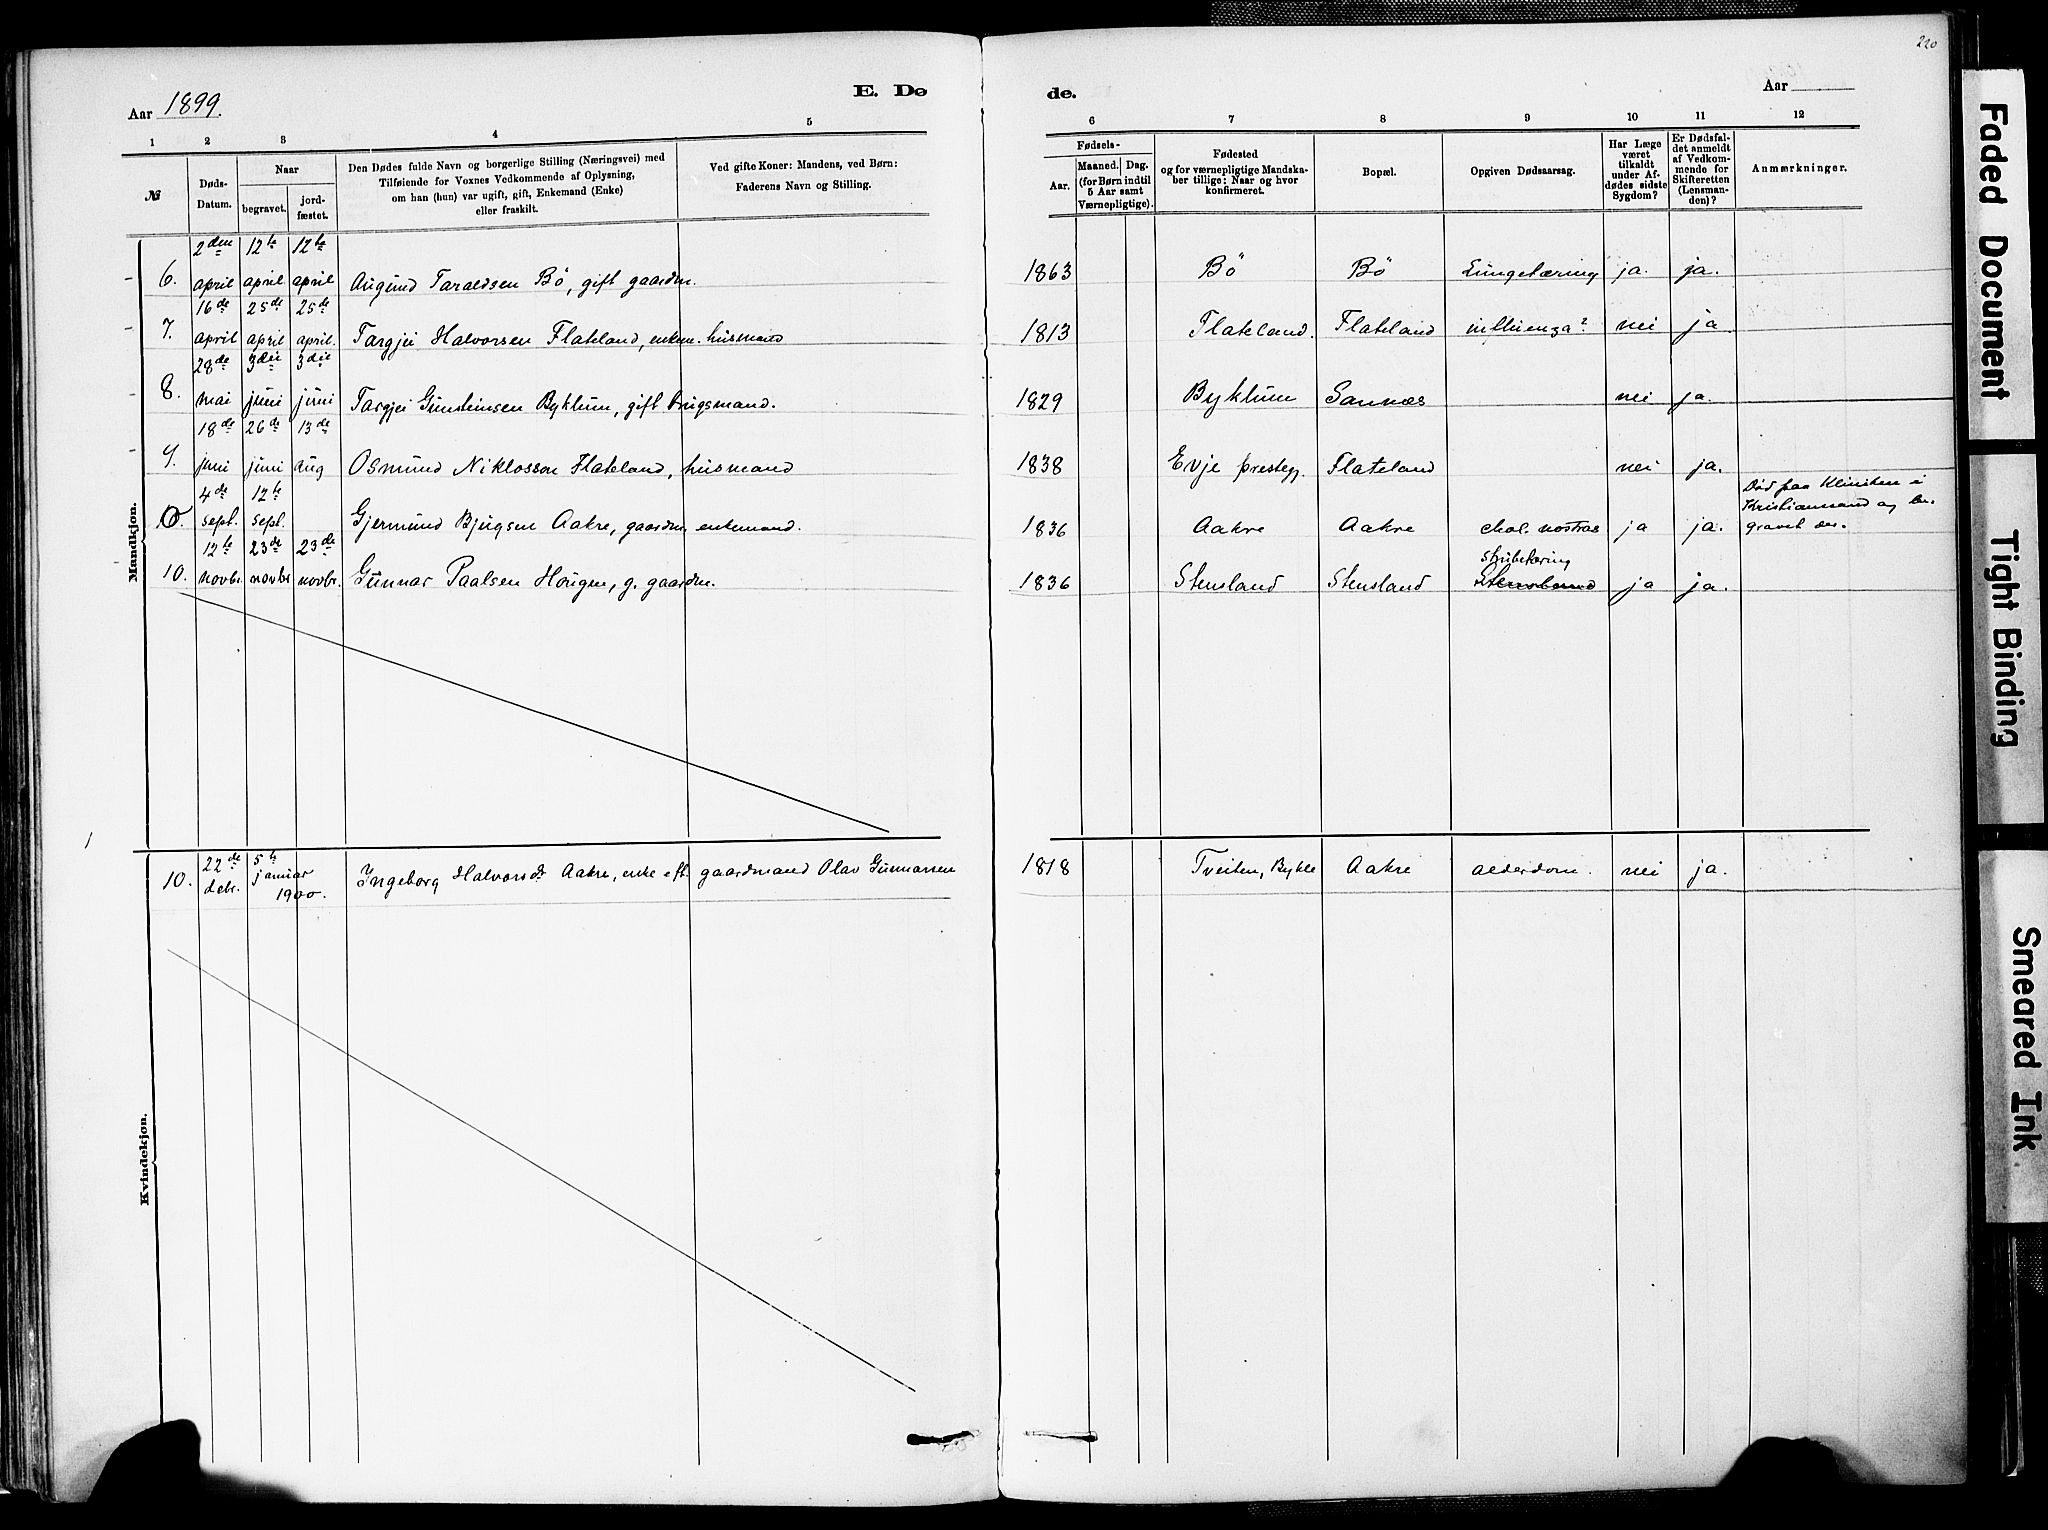 220
Aar 1899.
E. Dø
de.
Aar
1 2 3 4 5
6 7 8 9 10 11 12
№
Døds-Datum.
Naar
begravet.
jord-fæstet.
Den Dødes fulde Navn og borgerlige Stilling (Næringsvei) med
Tilføiende for Voxnes Vedkommende af Oplysning,
om han (hun) var ugift, gift, Enkemand (Enke)
eller fraskilt.
Ved gifte Koner: Mandens, ved Børn:
Faderens Navn og Stilling.
Fødsels-
Aar.
Maaned. Dag.
(for Børn indtil
5 Aar samt
Værnepligtige).
Fødested
og for værnepligtige Mandska-
ber tillige: Naar og hvor
konfirmeret.
Bopæl.
Opgiven Dødsaarsag.
Har Læge
været
tilkaldt
under Af-
dødes sidste
Sygdom?
Er Dødsfal-
det anmeldt
af Vedkom-
mende for
Skifteretten
(Lensman-
den)?
Anmærkninger.
Mandkjøn.
2den 12te 12te
6. april april april Augund Taraldsen Bö, gift gaardm. 1863 Bö Bö Lungetæring ja. ja.
16de 25de 25de
7. april april april. Targjei Halvorsen Flateland, enkem. husmand 1813 Flateland. Flateland influenza? nei ja
28de 3die 3die
8. mai juni juni Targjei Gunsteinsen Byklum, gift brugsmand. 1829 Byklum Sannæs nei ja.
18de 26de 13de
9. juni juni aug Osmund Niklosson Flateland, husmand 1838 Evje prestegj. Flateland nei ja.
4de 12te
10. sept. sept. Gjermund Bjugsen Aakre, gaardm, enkemand. 1836 Aakre Aakre chol. nostras ja ja. Död paa Kliniken i
Kristianssand og be-
gravet der.
12te 23de 23de
10. novbr novbr novbr. Gunnar Paalsen Hougen, g. gaardm. 1836 Stensland Stensland strubetæring
Stensland ja ja.
Kvindekjøn.
10. 22de debr. 5te januar 1900. Ingeborg Halvorsdr Aakre, enke eft. gaardmand Olav Gunnarsen 1818 Tveiten, Bykle Aakre alderdom. nei ja.
Faded Document
Tight Binding
Smeared Ink